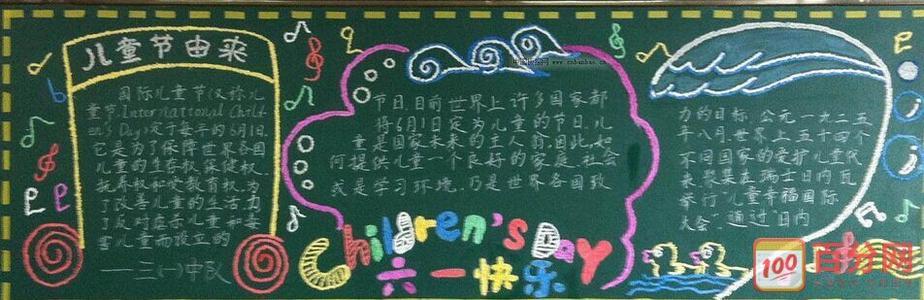 儿童节由来
国际儿童节(又称儿
童节,International Child-
en's Day)定于每年的6月1日.
它是为了保障世界各国
儿童的生存权、保健权、
抚养权和受教育权.为
了改善儿童的生活.为
了反对虐杀儿童和毒
害儿童而设立的
——三(一)中队
节日.目前世界上许多国家都
将6月1日定为儿童的节日.儿
童是国家未来的主人翁.因此,如
何提供儿童一个良好的家庭,社会
或是学习环境.乃是世界各国致
Children's Day
六一快乐
力的目标.公元一九二五
年八月.世界上五十四个
不同国家的爱护儿童代
表.聚集在瑞士日内瓦
举行"儿童幸福国际
大会".通过"日内
100
百分网